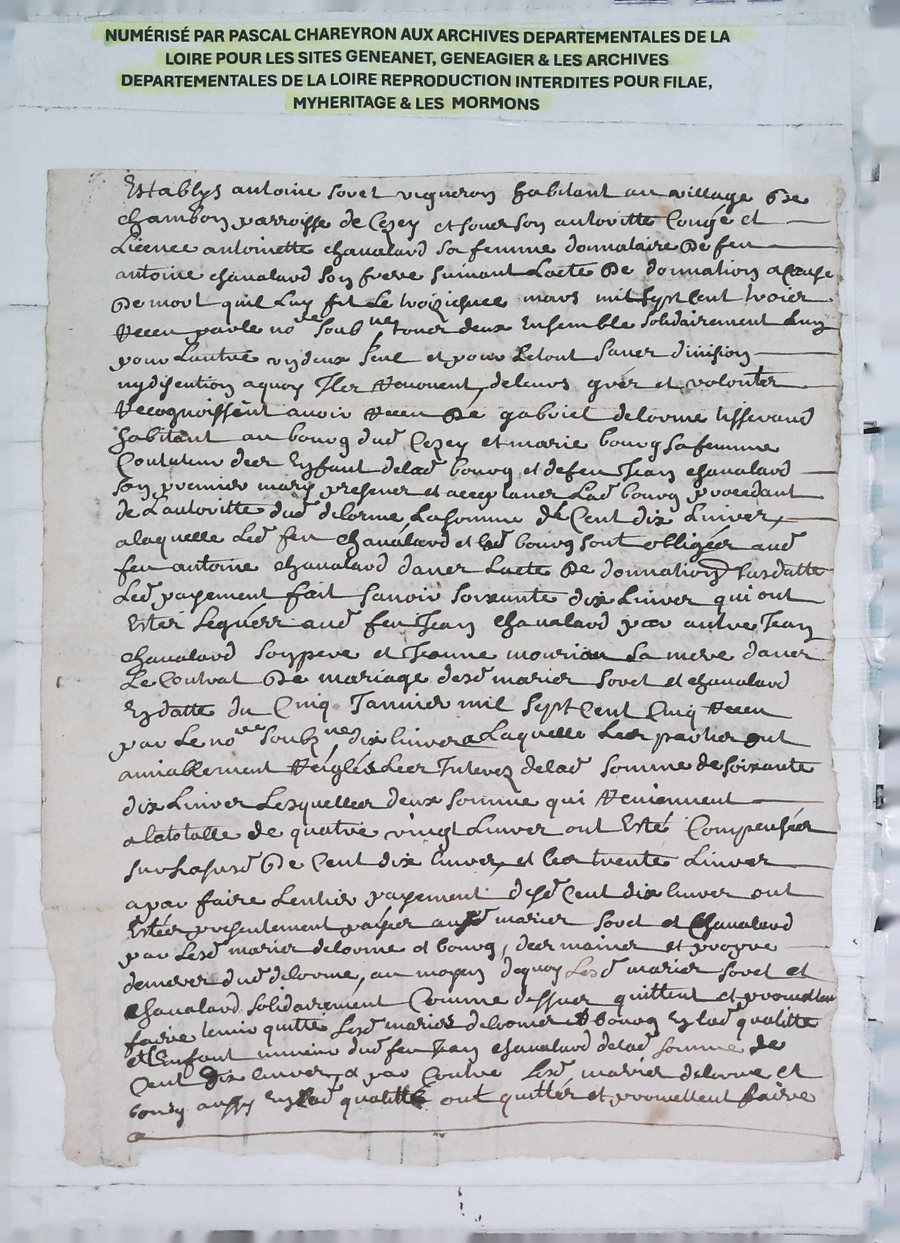 NUMÉRISÉ PAR PASCAL CHAREYRON AUX ARCHIVES DEPARTEMENTALES DE LA
LOIRE POUR LES SITES GENEANET, GENEAGIER & LES ARCHIVES
DEPARTEMENTALES DE LA LOIRE REPRODUCTION INTERDITES POUR FILAE,
MYHERITAGE & LES MORMONS
Establys antoine sovet vigneron habitant au village de
chambon parroisse de Cezey et soubs son authoritte Congé et
Licence antoinette chavaland sa femme donnataire de feu
antoine chavaland son frere suivant Lacte de donnation a cause
de mort quil Luy fit Le mars mil sept Cent
receu par le no^re soub^ne deux Ensemble solidairement Lun
pour Lautre ny deux seul et pour Le tout sans division
ny discution a quoy Ils renoncent, de leurs grés et volontes
recognoissent avoir receu de gabriel delorme tisserand
habitant au bourg dud Cezey et marie bourg sa femme
des Enfant de lad bourg et de feu Jean chavaland
son premier mary presents et acceptants Lad bourg procedant
de Lautoritte dud delorme La somme de Cent dix Livres
a laquelle Led feu chavaland et lad bourg sont obligées aud
feu antoine chavaland dans Lacte de donnation susdatte
Led payement fait savoir soixante dix Livres qui ont
Estés Leguées aud feu Jean chavaland par autre Jean
chavaland son pere et Jeanne sa mere dans
Le Contrat de mariage desd maries sovet et chavaland
En datte du Cinq Janvier mil sept Cent Cinq receu
par Le no^re soub^ne dix livres a Laquelle Les parties ont
amiablement réiglés Les Interez de lad somme de soixante
dix Livres Lesquelles deux somme qui reviennent
a la totalle de quatre vingt Livres ont Esté Compensées
sur lasusd de Cent dix livres, et les trente Livres
a par faire Lentier payement desd Cent dix livres ont
Estées presentement payées ausd maries sovet et Chavaland
par Lesd maries delorme et bourg, des mains et propre
deniers dud delorme, au moyen de quoy Lesd maries sovet et
chavaland solidairement Comme dessus quittent et promettent
faire tenir quitte Lesd maries delorme et bourg En lad qualitte
et Enfant dud feu Jean chavaland de lad somme de
Cent dix livres, par Contre Lesd maries delorme et
bourg aussy En lad qualitté ont quittés et promettent faire